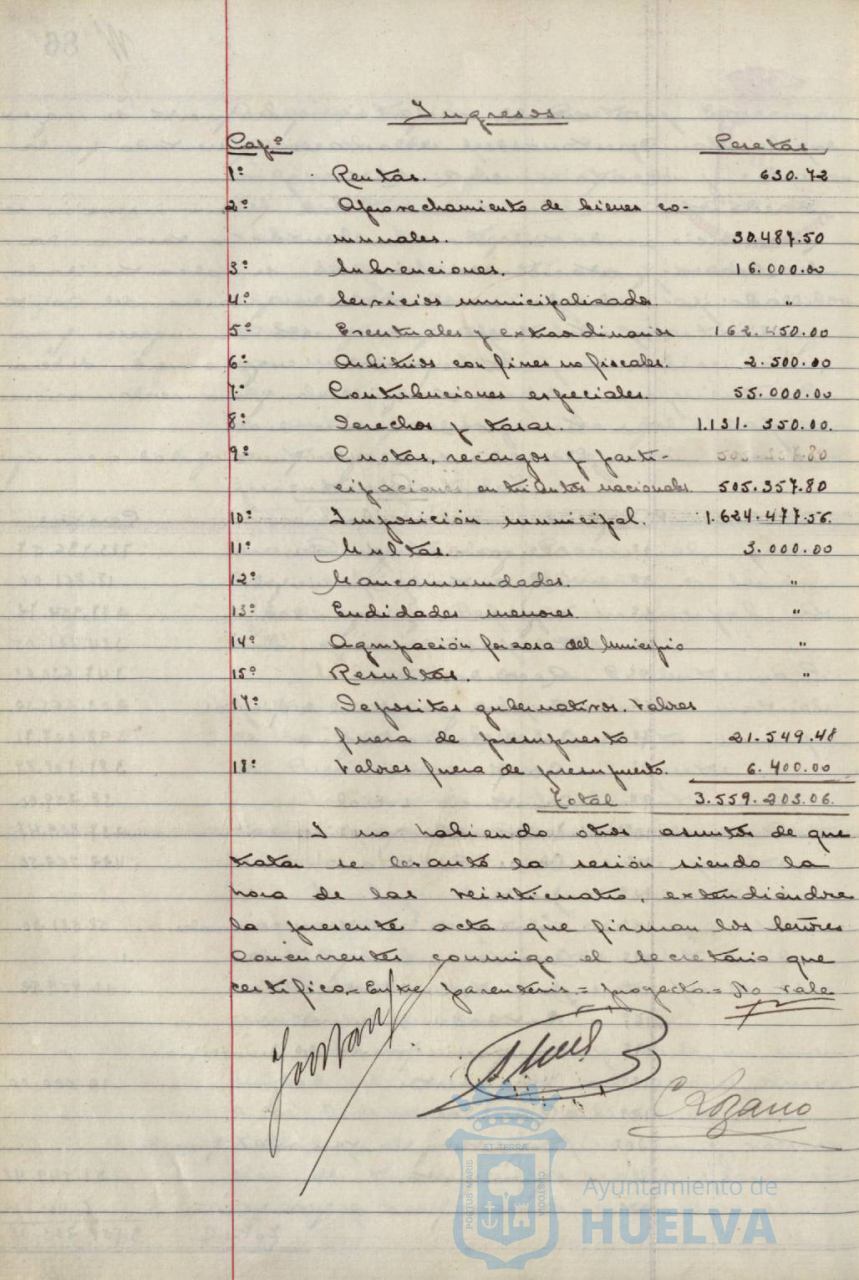 Ingresos.
Capº Pesetas
1º Rentas. 630.72
2º Aprovechamiento de bienes co-
munales. 30.487.50
3º Subvenciones. 16.000.00
4º Servicios municipalizados. "
5º Eventuales y extraordinarios 162.450.00
6º Arbitrios con fines no fiscales. 2.500.00
7º Contribuciones especiales. 55.000.00
8º Derechos y tasas. 1.131.350.00.
9º Cuotas, recargos y parti-
cipaciones en tributos nacionales. 505.357.80
10º Imposición municipal. 1.624.477.56.
11º Multas. 3.000.00
12º Mancomunidades. "
13º Endidades menores "
14º Agrupación forzosa del Municipio "
15º Resultas. "
17º Depositos gubernativos. Valores
fuera de presupuesto 21.549.48
18º Valores fuera de presupuesto. 6.400.00
Total 3.559.203.06.
Y no habiendo otros asuntos de que
tratar se levantó la sesión siendo la
hora de las veinticuatro, extendiéndose
la presente acta que firman los señores
concurrentes conmigo el Secretario que
certifico.- Entre parentesis = proyecto = No vale
C Lozano
PORTUS MARIS ET TERRÆ CUSTODIA
Ayuntamiento de
HUELVA